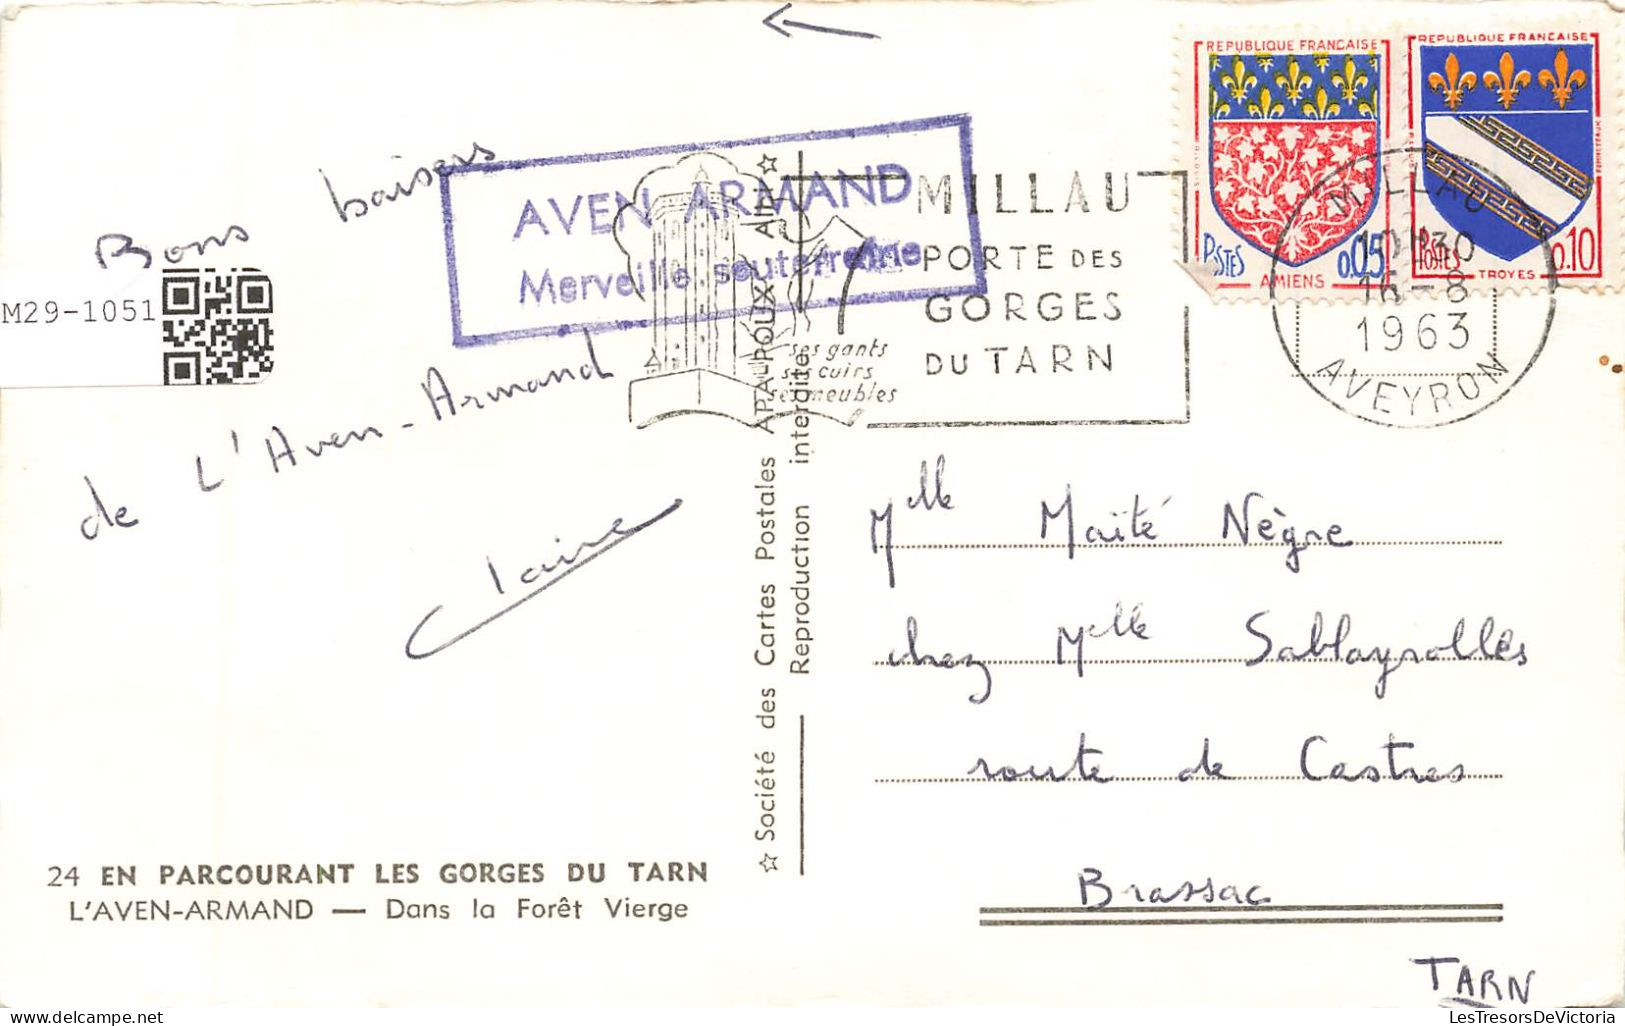 Bons baisers
de L'Aven-Armand
Claire
M29-1051
AVEN ARMAND
Merveille souterraine
MILLAU
PORTE DES
GORGES
DU TARN
ses gants
ses cuirs
ses meubles
REPUBLIQUE FRANÇAISE
POSTES
0.05
AMIENS
REPUBLIQUE FRANÇAISE
POSTES
0.10
TROYES
MILLAU
10H30
16-8
1963
AVEYRON
☆ Société des Cartes Postales APA-POUX - Albi ☆
Reproduction interdite
Mlle Maïté Nègre
chez Mlle Sablayrolles
route de Castres
Brassac
TARN
24 EN PARCOURANT LES GORGES DU TARN
L'AVEN-ARMAND — Dans la Forêt Vierge
LesTresorsDeVictoria